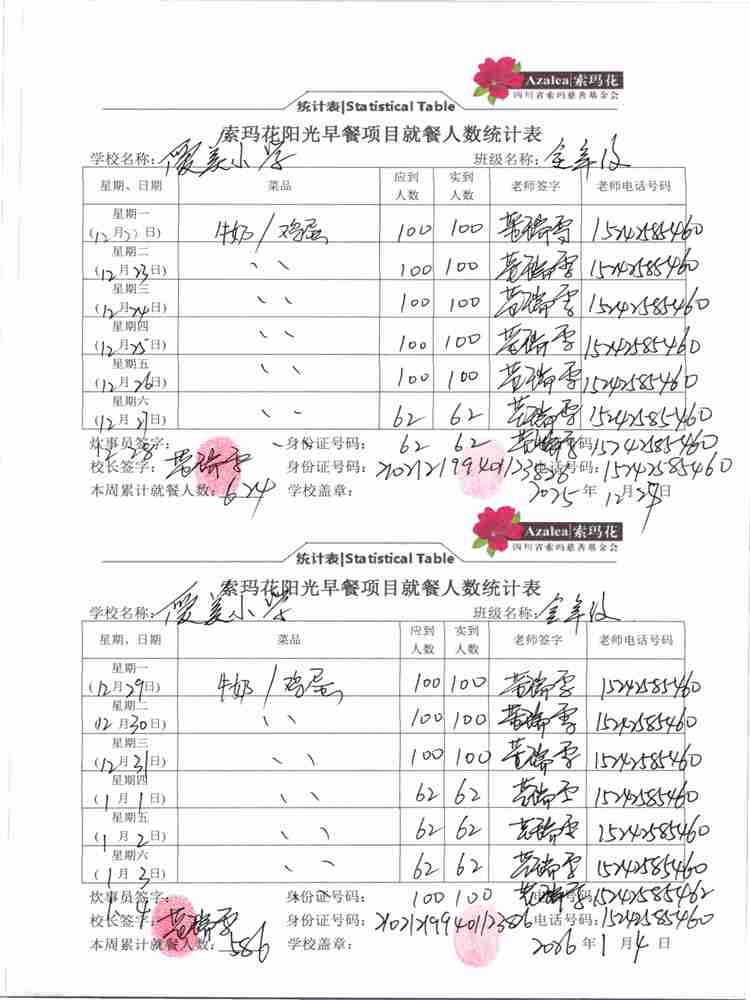 Azalea|索玛花
四川省索玛慈善基金会
统计表|Statistical Table
索玛花阳光早餐项目就餐人数统计表
学校名称: 小学 班级名称:
星期、日期 菜品 应到人数 实到人数 老师签字 老师电话号码
星期一
(12月22日) 牛奶/鸡蛋 100 100 15242585460
星期二
(12月23日) 、、 100 100 15242585460
星期三
(12月24日) 、、 100 100 15242585460
星期四
(12月25日) 、、 100 100 15242585460
星期五
(12月26日) 、、 100 100 15242585460
星期六
(12月27日) 、、 62 62 15242585460
炊事员签字: 12.28 、、 身份证号码: 62 62 电话号码: 15242585460
校长签字: 身份证号码: 电话号码: 15242585460
本周累计就餐人数: 624 学校盖章: 2025年12月28日
Azalea|索玛花
四川省索玛慈善基金会
统计表|Statistical Table
索玛花阳光早餐项目就餐人数统计表
学校名称: 小学 班级名称:
星期、日期 菜品 应到人数 实到人数 老师签字 老师电话号码
星期一
(12月29日) 牛奶/鸡蛋 100 100 15242585460
星期二
(12月30日) 、、 100 100 15242585460
星期三
(12月31日) 、、 100 100 15242585460
星期四
(1月1日) 、、 62 62 15242585460
星期五
(1月2日) 、、 62 62 15242585460
星期六
(1月3日) 、、 62 62 15242585460
炊事员签字: 1.4 、、 身份证号码: 100 100 电话号码: 15242585462
校长签字: 身份证号码: 电话号码: 15242585460
本周累计就餐人数: 586 学校盖章: 年1月4日